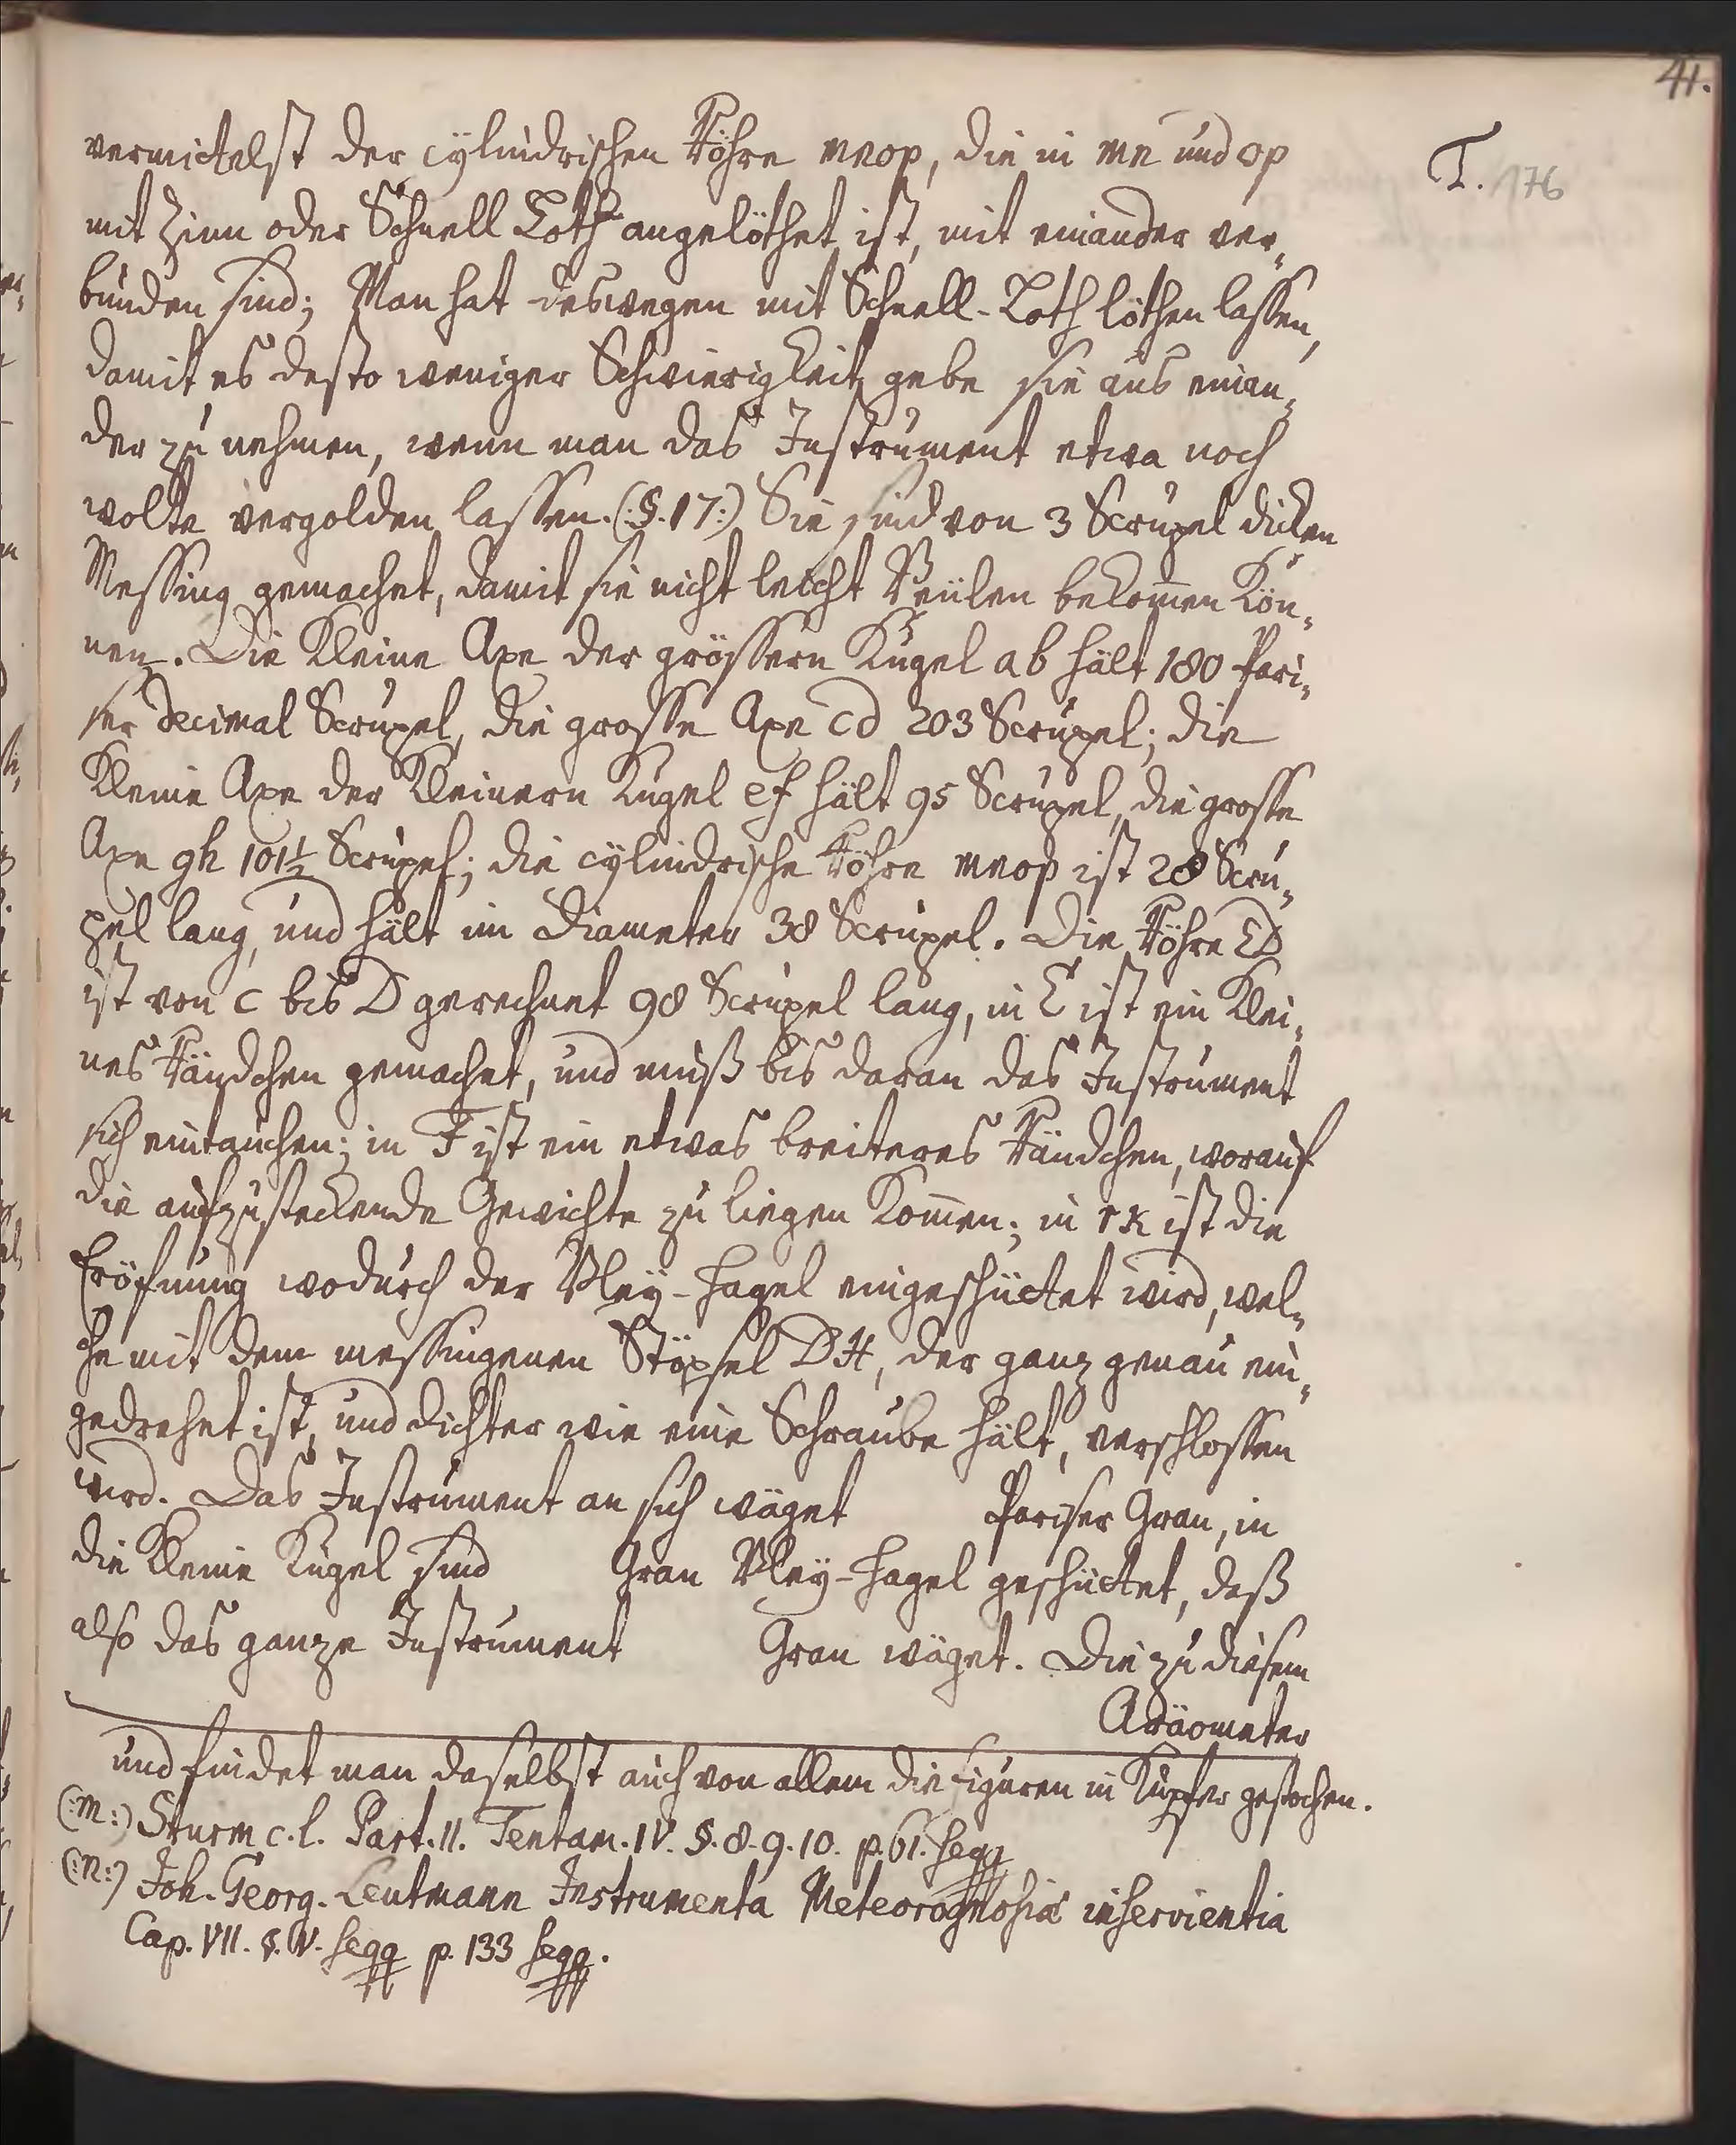 41.
T. 176
vermittelst der cylindrischen Röhre mnop, die in mn und op
mit Zinn oder Schnell Loth angelöthet ist, mit einander ver-
bunden sind; Man hat deswegen mit Schnell-Loth löthen lassen,
damit es desto weniger Schwierigkeit gebe sie aus einan-
der zu nehmen, wenn man das Instrument etwa noch
wolte vergolden lassen. (:§.17:) Sie sind von 3 Scrupel dicken
Messing gemachet, damit sie nicht leicht Beülen bekom̄en kön-
nen. Die kleine Axe der grössern Kugel ab hält 180 Pari-
ser Decimal Scrupel, die grosse Axe cd 203 Scrupel; die
kleine Axe der kleinern Kugel ef hält 95 Scrupel, die grosse
Axe gh 101½ Scrupel; die cylindrische Röhre mnop ist 28 Scru-
pel lang, und hält im Diameter 38 Scrupel. Die Röhre CD
ist von c bis D gerechnet 98 Scrupel lang, in C ist ein klei-
nes Rändchen gemachet, und muß bis daran das Instrument
sich eintauchen; in F ist ein etwas breiteres Rändchen, worauf
die aufzusteckende Gewichte zu liegen kom̄en; in rk ist die
Eröfnung wodurch der Bley-Hagel eingeschüttet wird, wel-
che mit dem messingenen Stöpsel DH, der ganz genau ein-
gedrehet ist, und dichter wie eine Schraube hält, verschlossen
wird. Das Instrument an sich wäget Pariser Gran, in
die kleine Kugel sind Gran Bley-Hagel geschüttet, daß
also das ganze Instrument Gran wäget. Die zu diesem
Aräometer
und findet man daselbst auch von allem die Figuren in Kupfer gestochen.
(:m:) Sturm c.l. Part.II. Tentam.IV. §.8.9.10. p.61. seqq
(:n:) Joh. Georg. Leutmann Instrumenta Meteorognosiæ inservientia
Cap.VII. §.IV. seqq p.133 seqq.